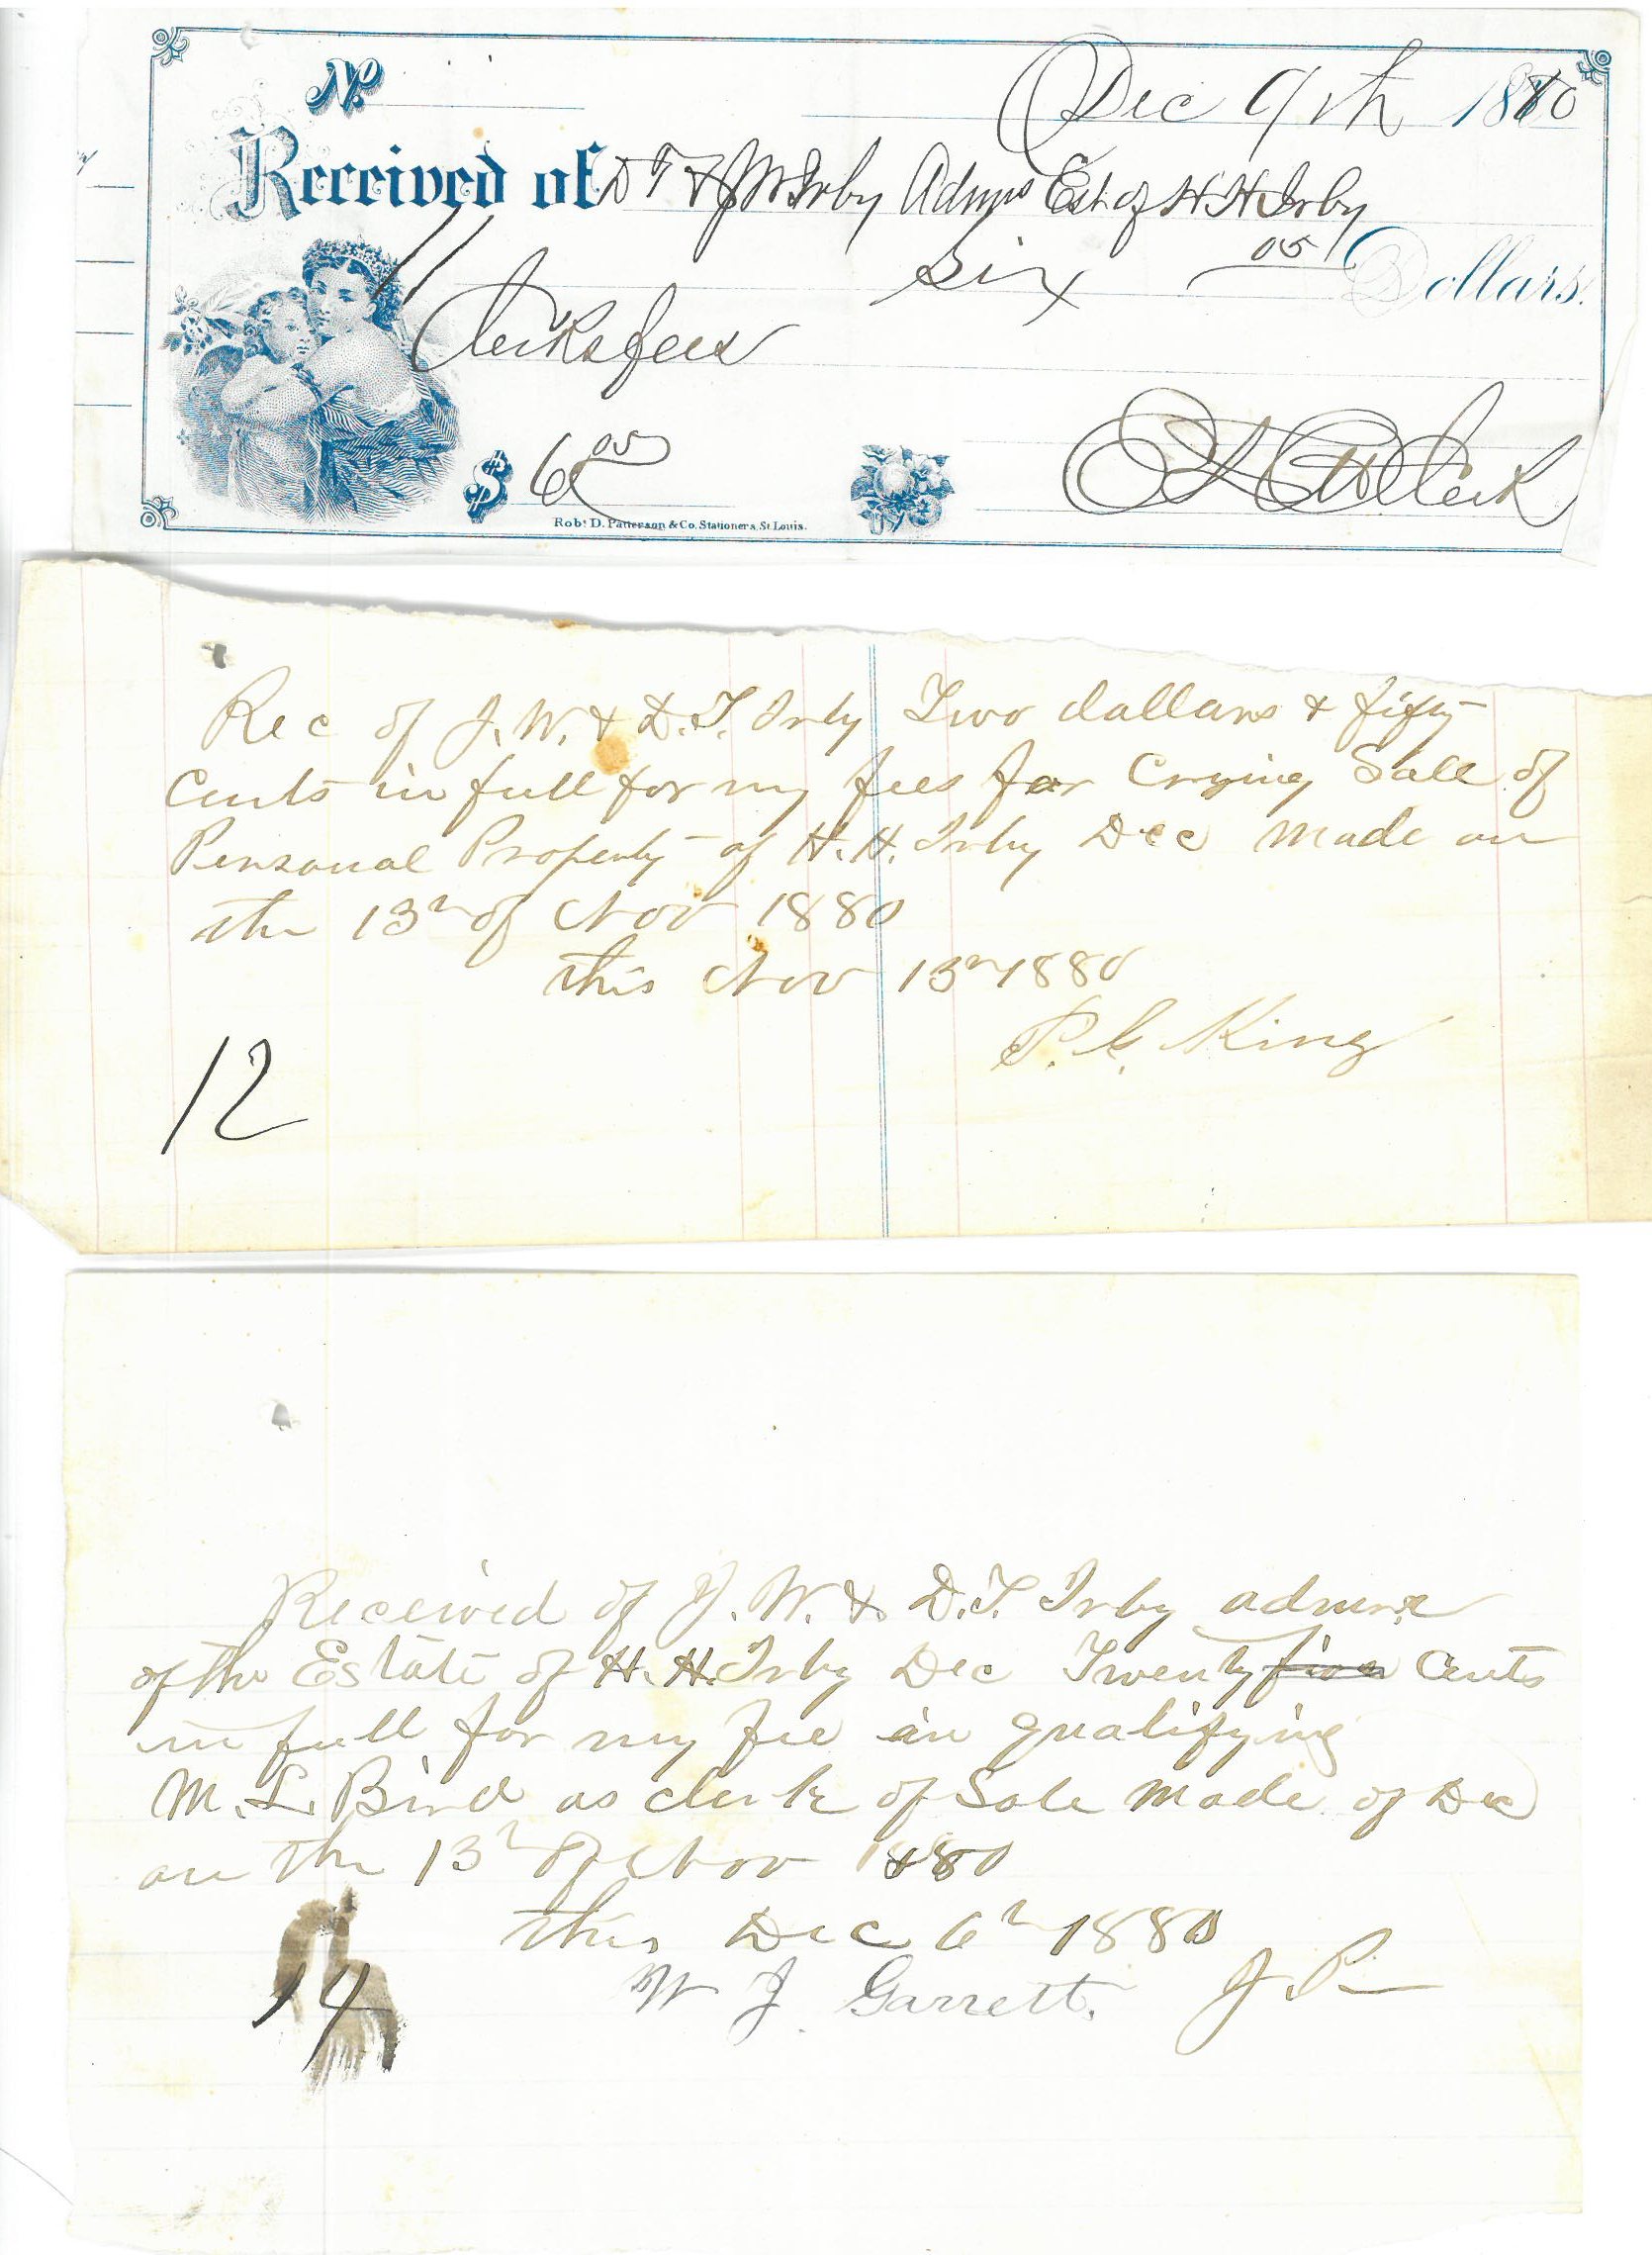 No. Dec 9th 1880
Received of D T & J W Irby Admrs Est of H H Irby
11 Six 05/ Dollars.
Clerks fees
$ 6 05 Clerk
Robt. D. Patterson & Co. Stationers, St. Louis.
Rec of J. W. & D. T. Irby Two dollars & fifty
Cents in full for my fees for Crying Sale of
Personal Property of H. H. Irby Dec Made on
the 13th of Nov 1880
this Nov 13th 1880
P. C. King
12
Received of J. W. & D. T. Irby admrs
of the Estate of H. H. Irby Dec Twenty five Cents
in full for my fee in qualifying
M. L. Bird as clerk of Sale Made of Dec
on the 13th of Nov 1880
this Dec 6th 1880
14 W J Garrett. J. P.